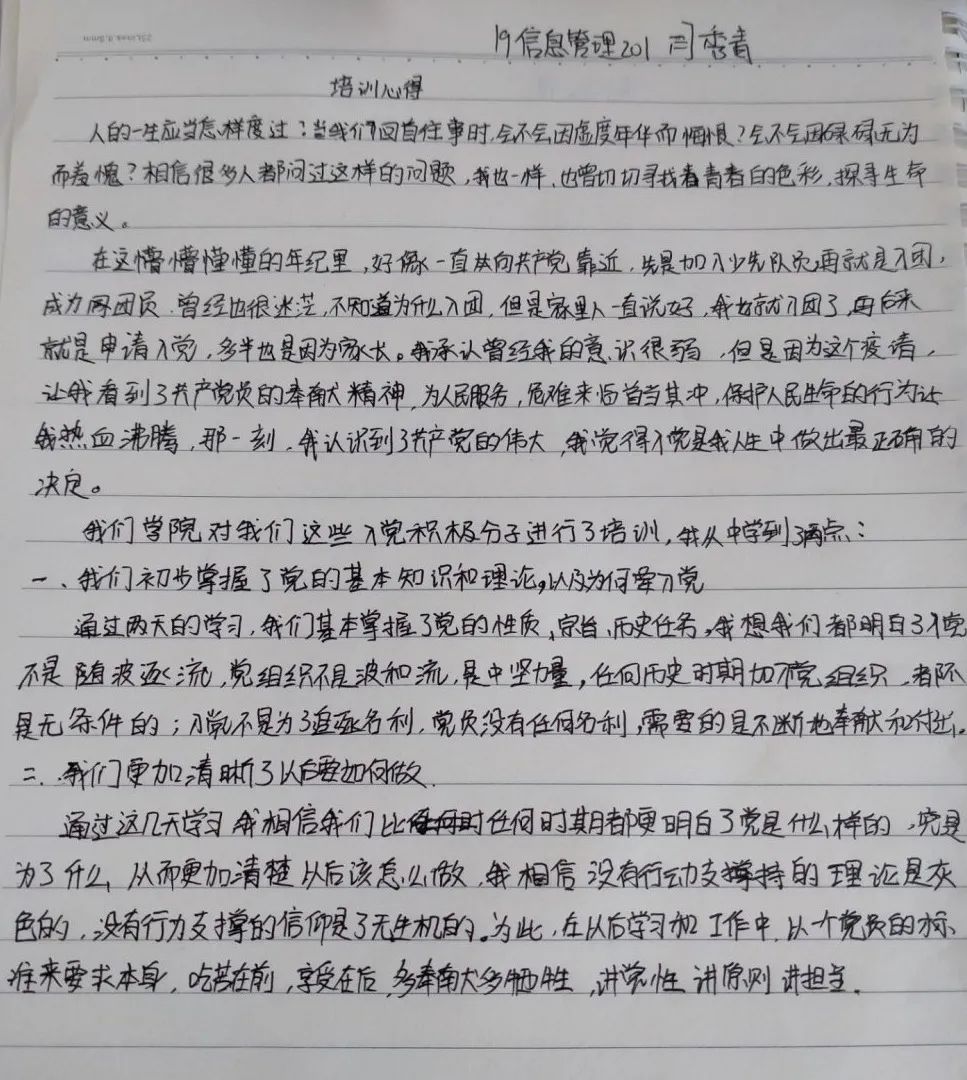 19信息管理201 闫秀青
培训心得
人的一生应当怎样度过？当我们回首往事时，会不会因虚度年华而悔恨？会不会因碌碌无为
而羞愧？相信很多人都问过这样的问题，我也一样，也曾切切寻找着青春的色彩，探寻生命
的意义。
在这懵懵懂懂的年纪里，好像一直从向共产党靠近，先是加入少先队员，再就是入团，
成为团员，曾经也很迷茫，不知道为什么入团，但是家里人一直说好，我也就入团了，再后来
就是申请入党，多半也是因为家长。我承认曾经我的意识很弱，但是因为这个疫请，
让我看到了共产党员的奉献精神，为人民服务，危难来临首当其冲，保护人民生命的行为让
我热血沸腾，那一刻，我认识到了共产党的伟大，我觉得入党是我人生中做出最正确的
决定。
我们学院对我们这些入党积极分子进行了培训，我从中学到了两点：
一、我们初步掌握了党的基本知识和理论，以及为何要入党
通过两天的学习，我们基本掌握了党的性质、宗旨、历史任务，我想我们都明白了入党
不是随波逐流，党组织不是波和流，是中坚力量，任何历史时期加入党组织，都不
是无条件的；入党不是为了追逐名利，党员没有任何名利，需要的是不断地奉献和付出。
二、我们更加清晰了以后要如何做
通过这几天学习，我相信我们比任何时期都更明白了党是什么样的，究竟是
为了什么，从而更加清楚以后该怎么做，我相信没有行动支撑持的理论是灰
色的，没有行力支撑的信仰是了无生机的。为此，在以后学习和工作中，以一个党员的标
准来要求本身，吃苦在前，享受在后，多奉献多牺牲，讲党性 讲原则 讲担当。